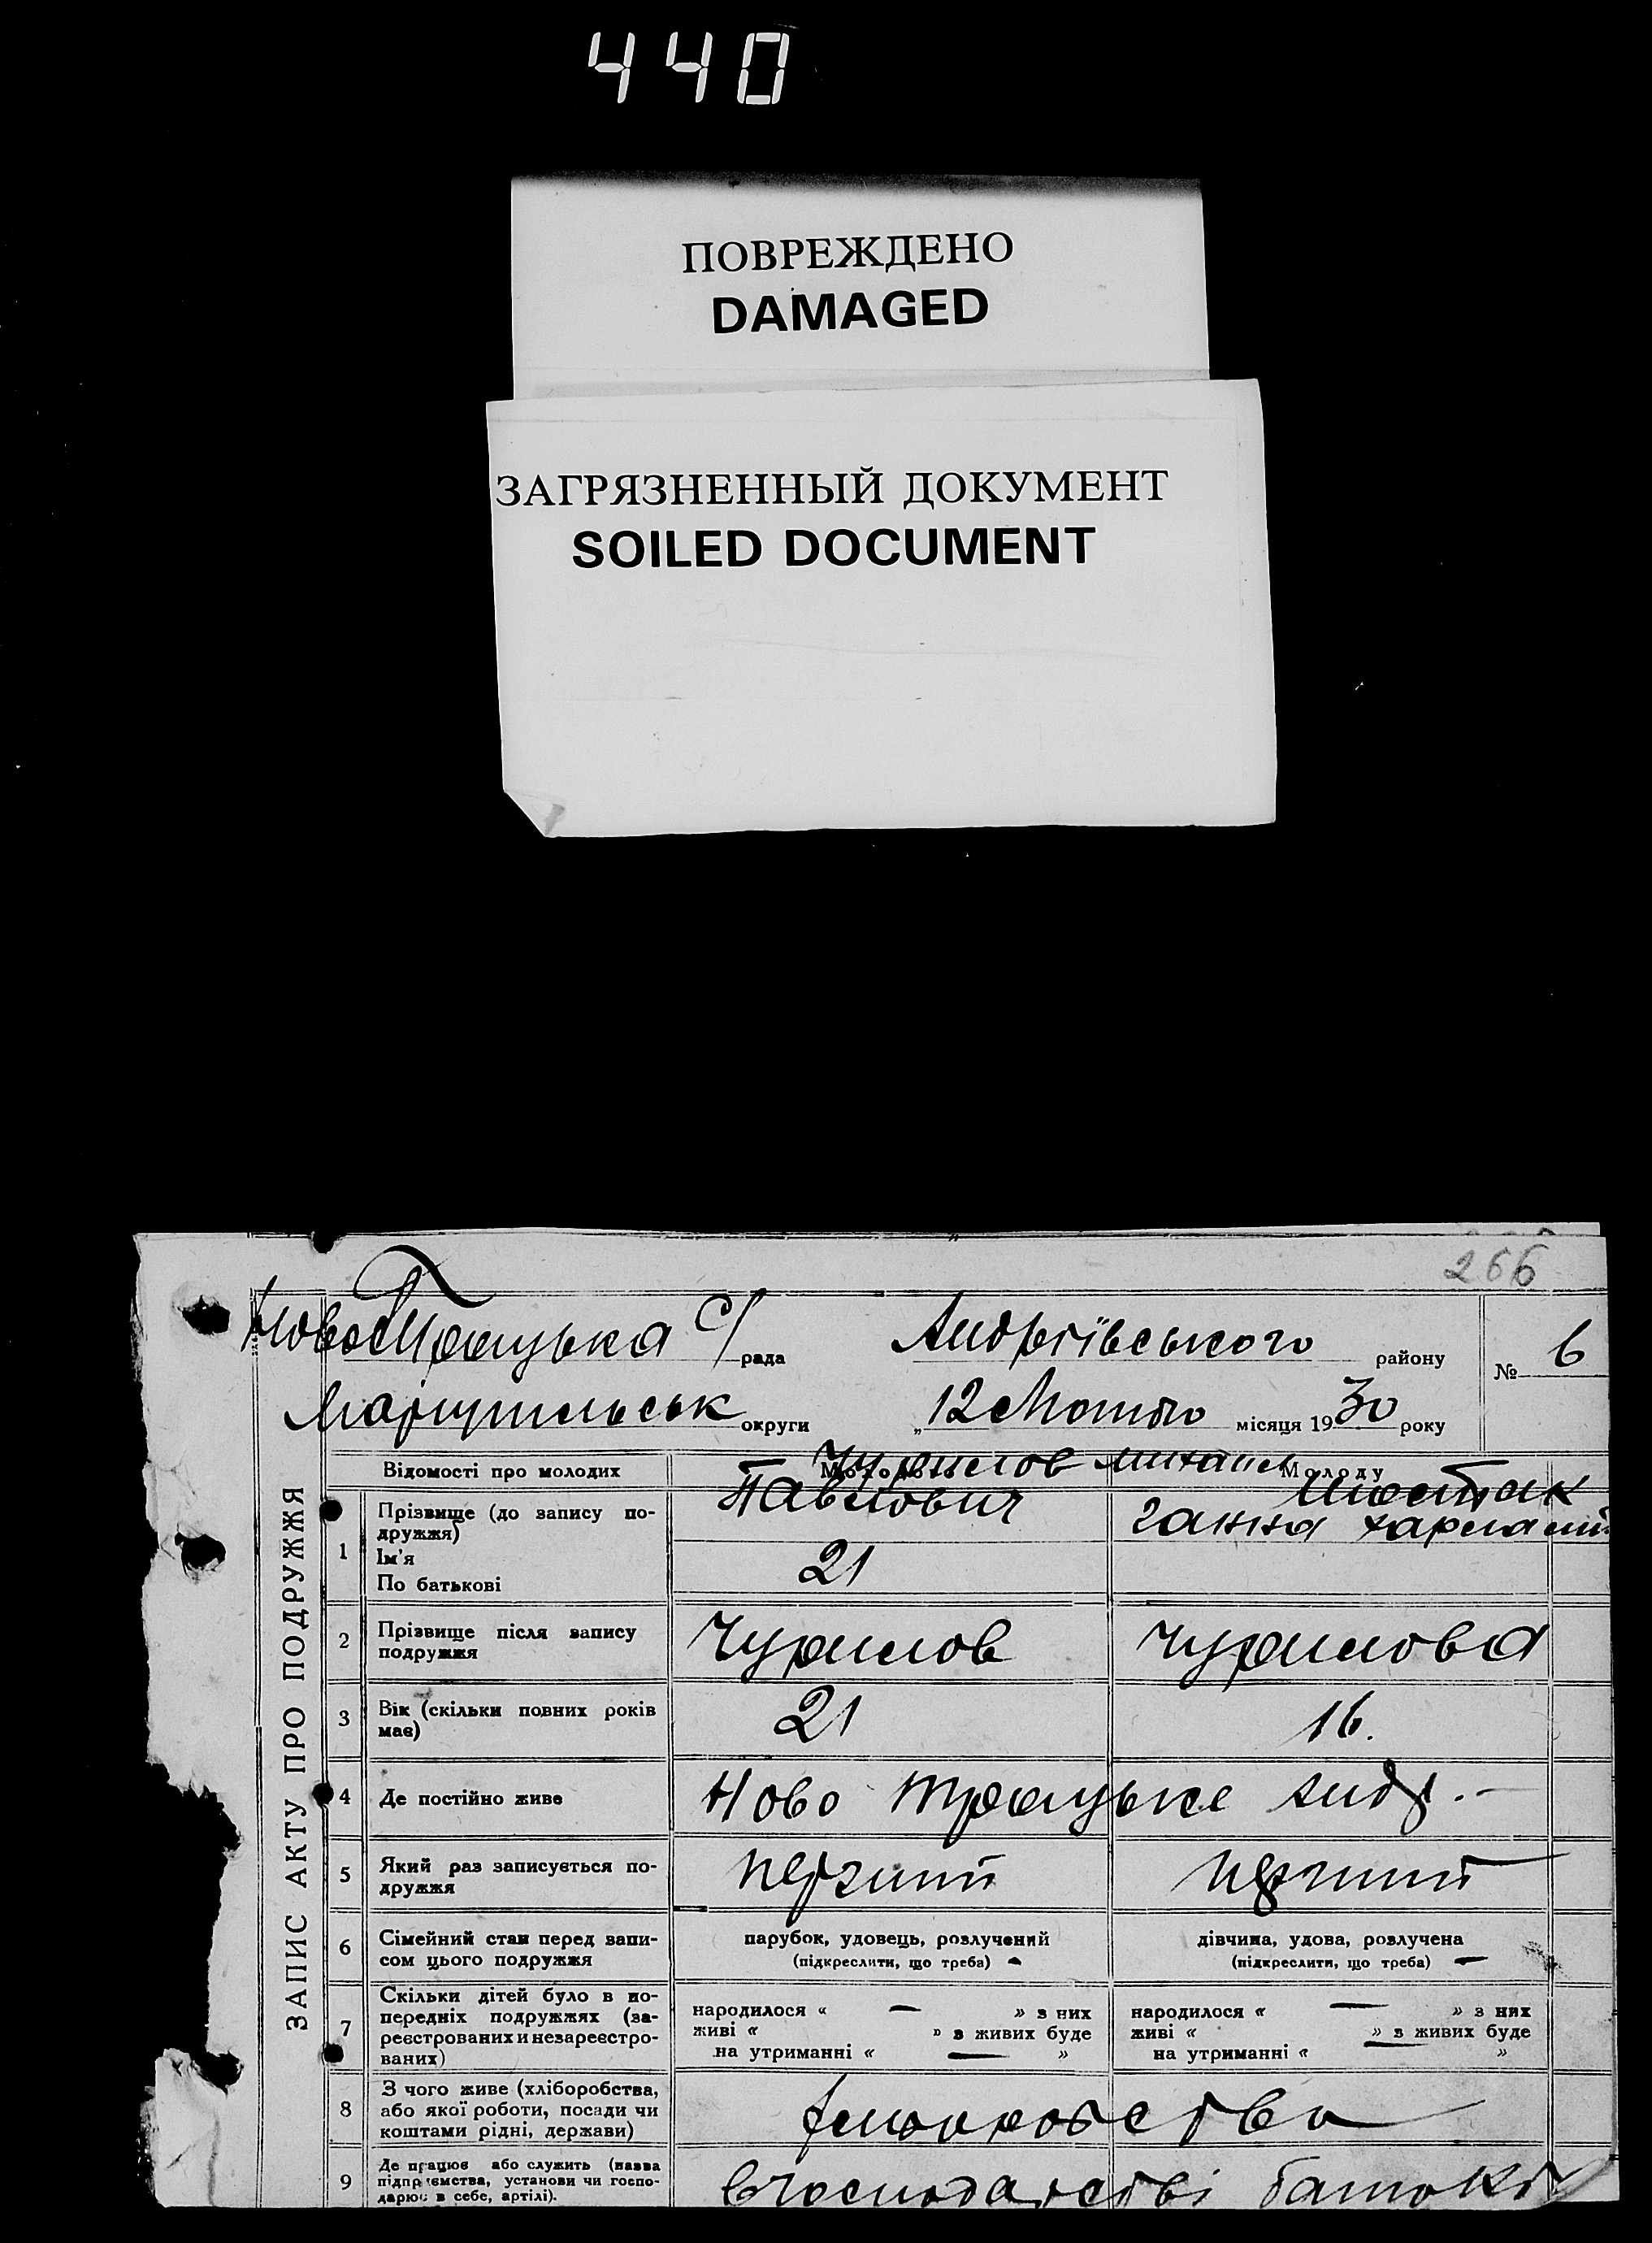 440
ПОВРЕЖДЕНО
DAMAGED
ЗАГРЯЗНЕННЫЙ ДОКУМЕНТ
SOILED DOCUMENT
266
С/рада Андріївського району № 6
округи „12 Лютого місяця 1930 року
Відомості про молодих
Чурилов Михайло
Молоду
ЗАПИС АКТУ ПРО ПОДРУЖЖЯ
1 Прізвище (до запису по-
дружжя)
Ім'я
По батькові
Павлович
21
Шостак
Ганна
2 Прізвище після запису
подружжя
Чурилов Чурилова
3 Вік (скільки повних років
має)
21 16.
4 Де постійно живе
Ново Троицьке Андр.
5 Який раз записується по-
дружжя
6 Сімейний стан перед запи-
сом цього подружжя
парубок, удовець, розлучений
(підкреслити, що треба) -
дівчина, удова, розлучена
(підкреслити, що треба) -
7 Скільки дітей було в по-
передніх подружжях (за-
реєстрованих и незареєстро-
ваних)
народилося « — » з них
живі « » з живих буде
на утриманні « — »
народилося « — » з них
живі « » з живих буде
на утриманні « — »
8 З чого живе (хліборобства,
або якої роботи, посади чи
коштами рідні, держави)
9 Де працює або служить (назва
підприємства, установи чи госпо-
дарює в себе, артілі).
в господарстві